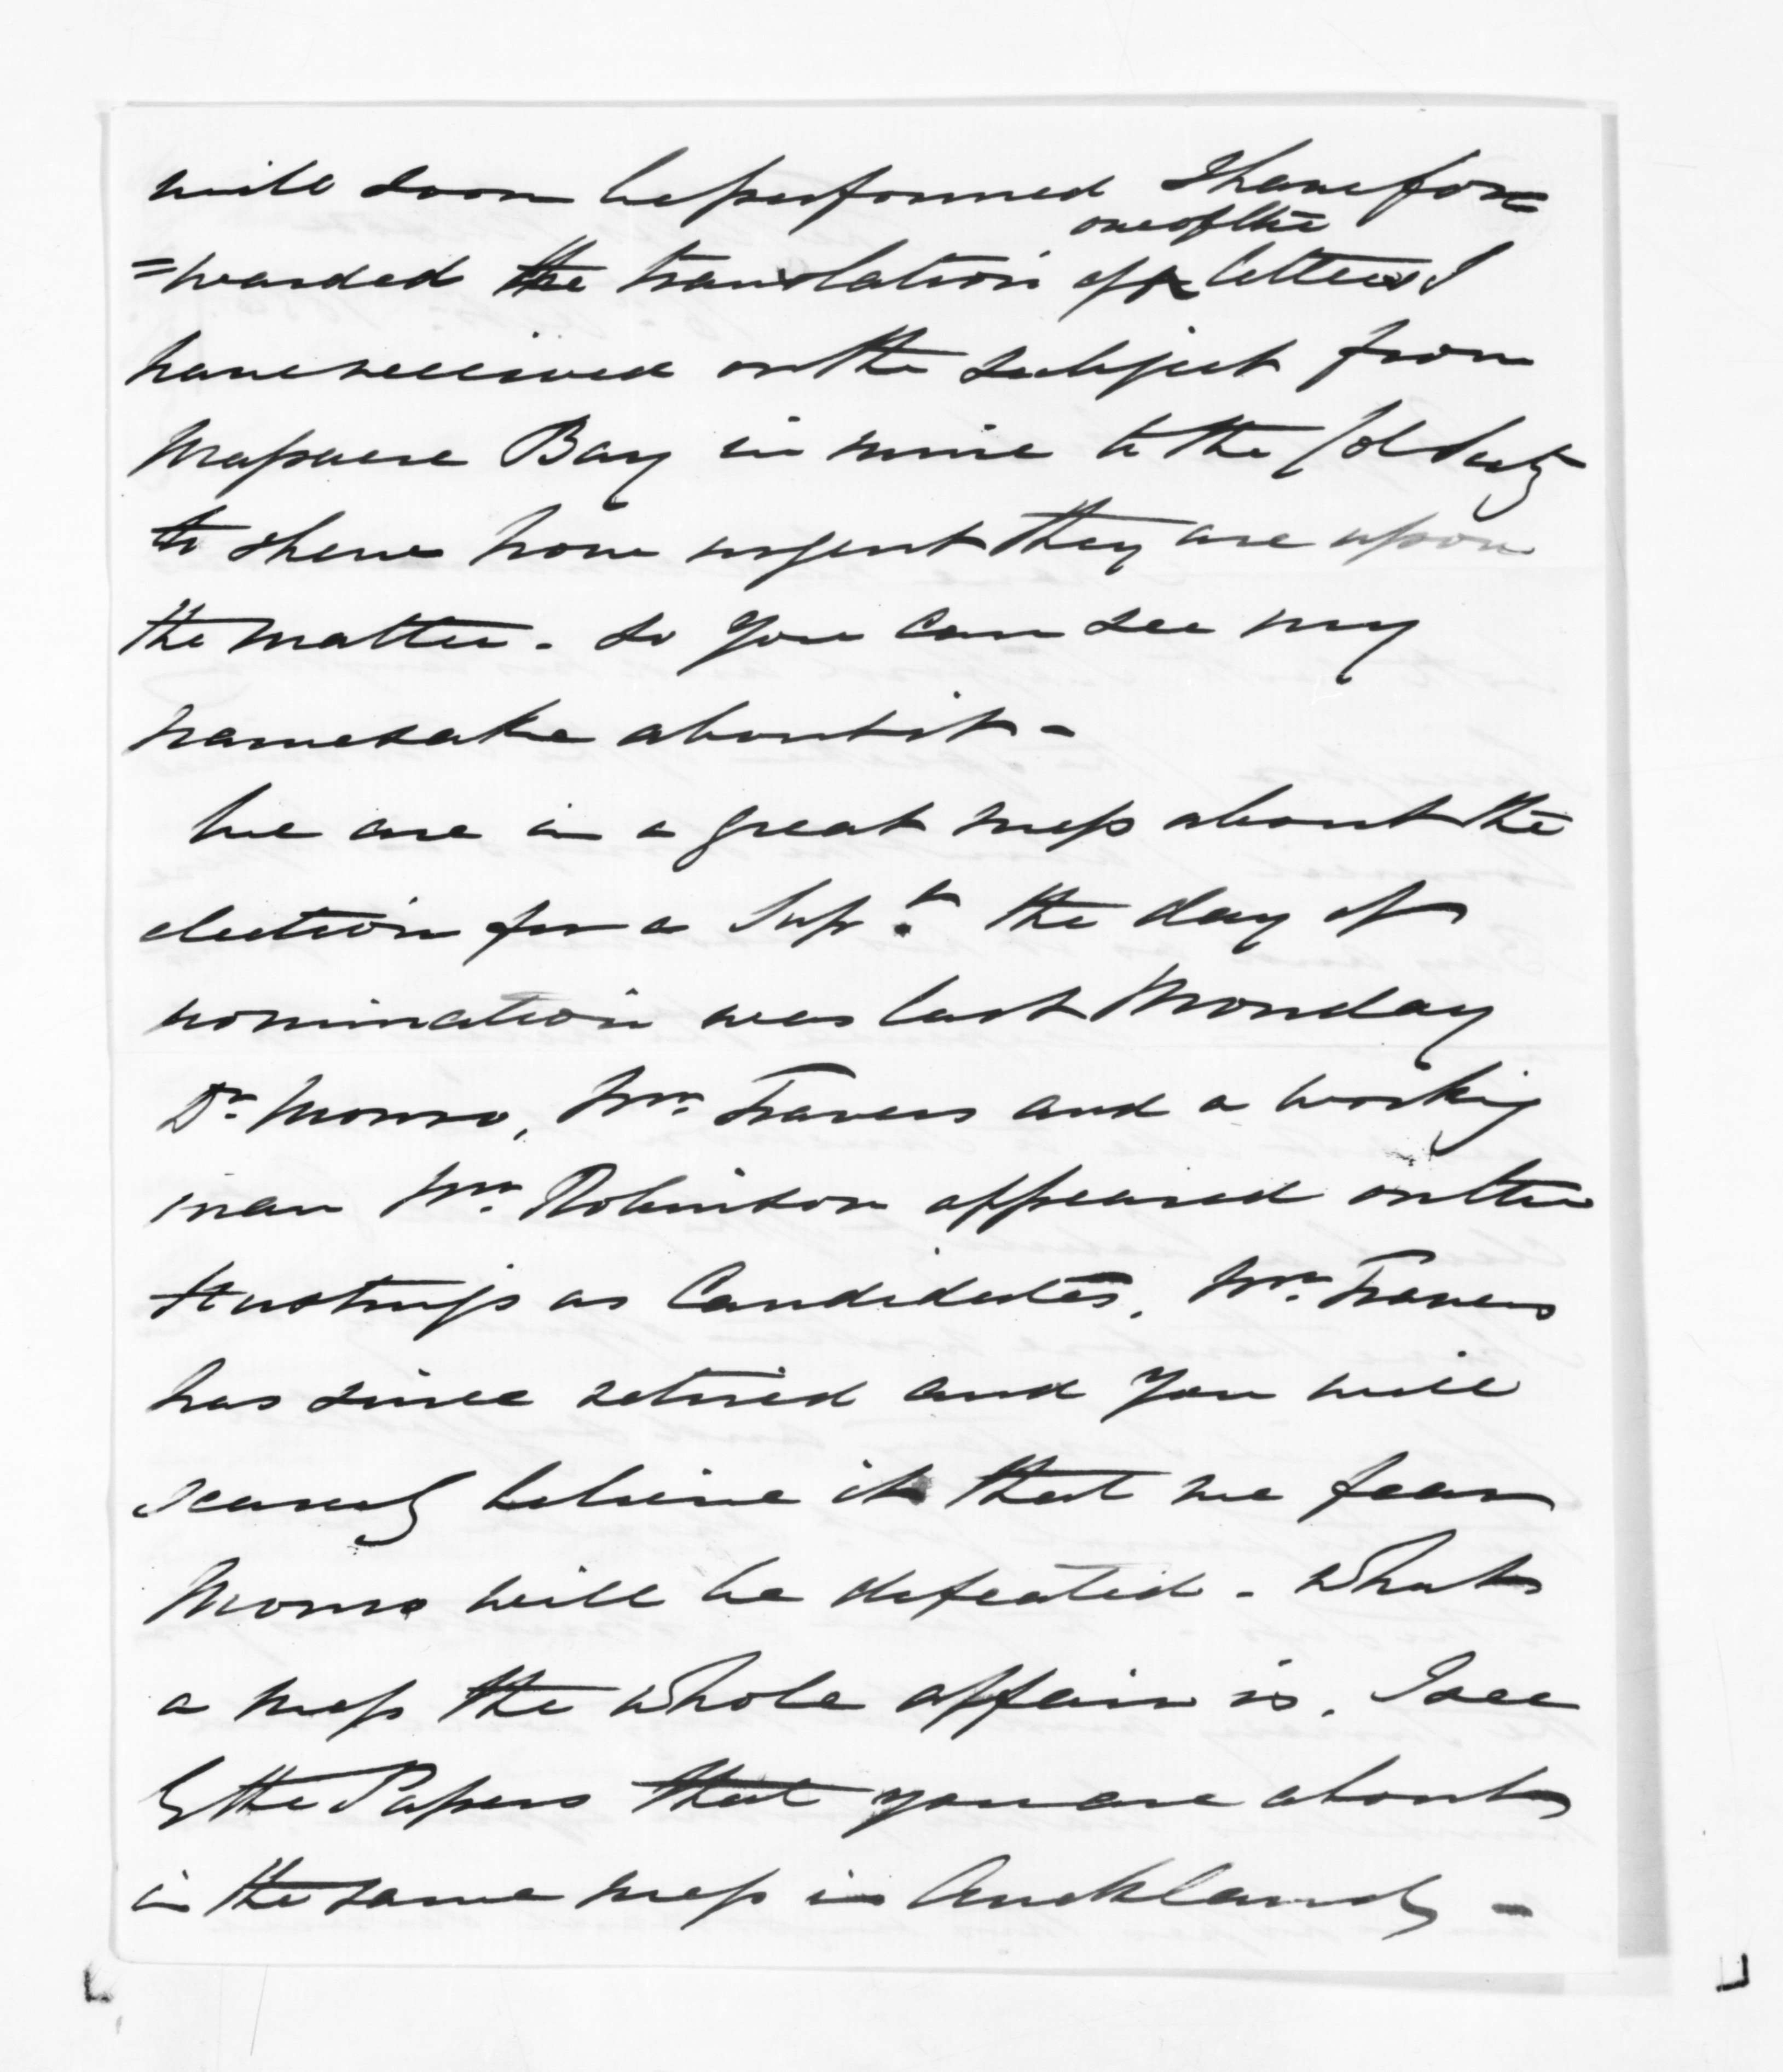 will soon be performed I have for=
one of the
=warded the translation of letters I
have received on the subject from
Massacre Bay in mine to the Col Secty
to shew how urgent they are upon
the matter. So you can see my
namesake about it -
We are in a great mess about the
election for a Supt. the day of
nomination was last Monday
Dr. Monro, Mr. Travers and a working
man Mr. Robinson appeared on the
Hustings as Candidates. Mr. Travers
has since retired and you will
scarcely believe it that we fear
Monro will be defeated - What
a mess the whole affair is. I see
by the Papers that you are about
in the same mess in Auckland -